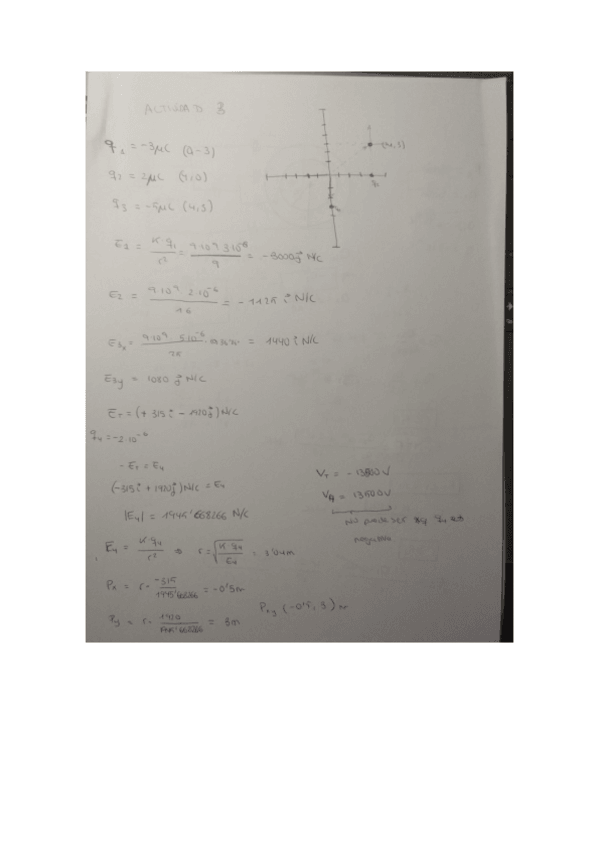 ACTIVIDAD 3
q1 = -3μC (0,-3)
q2 = 2μC (4,0)
q3 = -5μC (4,3)
(4,3)
q2
E1 = K·q1/r² = 9·10⁹·3·10⁻⁶/9 = -3000 j N/C
E2 = 9·10⁹·2·10⁻⁶/16 = -1125 i N/C
E3x = 9·10⁹·5·10⁻⁶/25 = 1440 i N/C
E3y = 1080 j N/C
ET = (+315 i - 1920 j) N/C
q4 = -2·10⁻⁶
-ET = E4
(-315 i + 1920 j) N/C = E4
|E4| = 1945'668266 N/C
E4 = K·q4/r² ⇒ r = √(K·q4/E4) = 3'04 m
Px = r· -315/1945'668266 = -0'5 m
Py = r· 1920/1945'668266 = 3 m
Px,y (-0'5, 3) m
VT = -13500 V
V4 = 13500 V
no puede ser q4 es
negativa